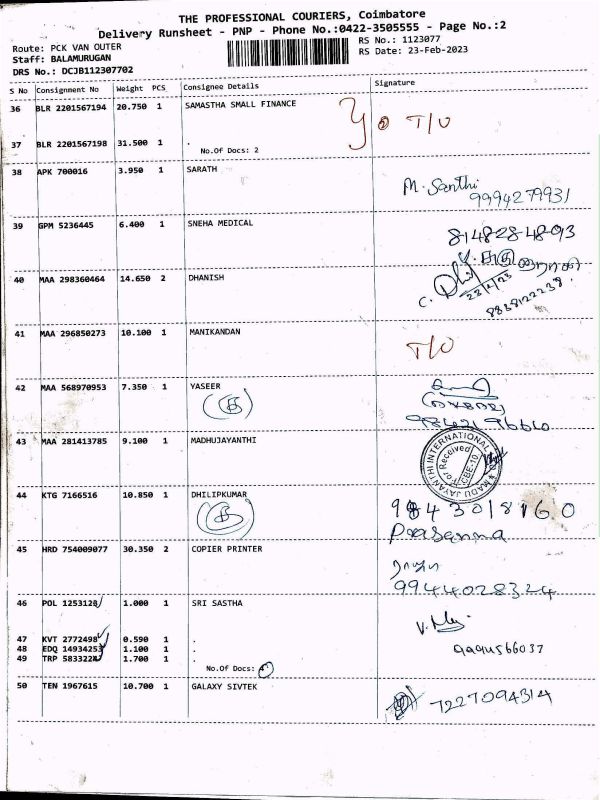 THE PROFESSIONAL COURIERS, Coimbatore
Delivery Runsheet - PNP - Phone No.:0422-3505555 - Page No.:2
Route: PCK VAN OUTER
RS No.: 1123077
Staff: BALAMURUGAN
RS Date: 23-Feb-2023
DRS No.: DCJB112307702
S No Consignment No Weight PCS Consignee Details Signature
36 BLR 2201567194 20.750 1 SAMASTHA SMALL FINANCE
T/O
37 BLR 2201567198 31.500 1 .
No.Of Docs: 2
38 APK 700016 3.950 1 SARATH
M. Santhi
9994279931
39 GPM 5236445 6.400 1 SNEHA MEDICAL
8148284893
40 MAA 298360464 14.650 2 DHANISH
41 MAA 296850273 10.100 1 MANIKANDAN
T/O
42 MAA 568970953 7.350 1 YASEER
43 MAA 281413785 9.100 1 MADHUJAYANTHI
MADU JAYANTHI INTERNATIONAL
Received
CBE-10
44 KTG 7166516 10.850 1 DHILIPKUMAR
Prasanna
45 HRD 754009077 30.350 2 COPIER PRINTER
ராஜா
9944028324
46 POL 1253120 1.000 1 SRI SASTHA
47 KVT 2772498 0.590 1 .
48 EDQ 14934253 1.100 1 .
49 TRP 5833224 1.700 1 .
No.Of Docs: 4
50 TEN 1967615 10.700 1 GALAXY SIVTEK
7227094314